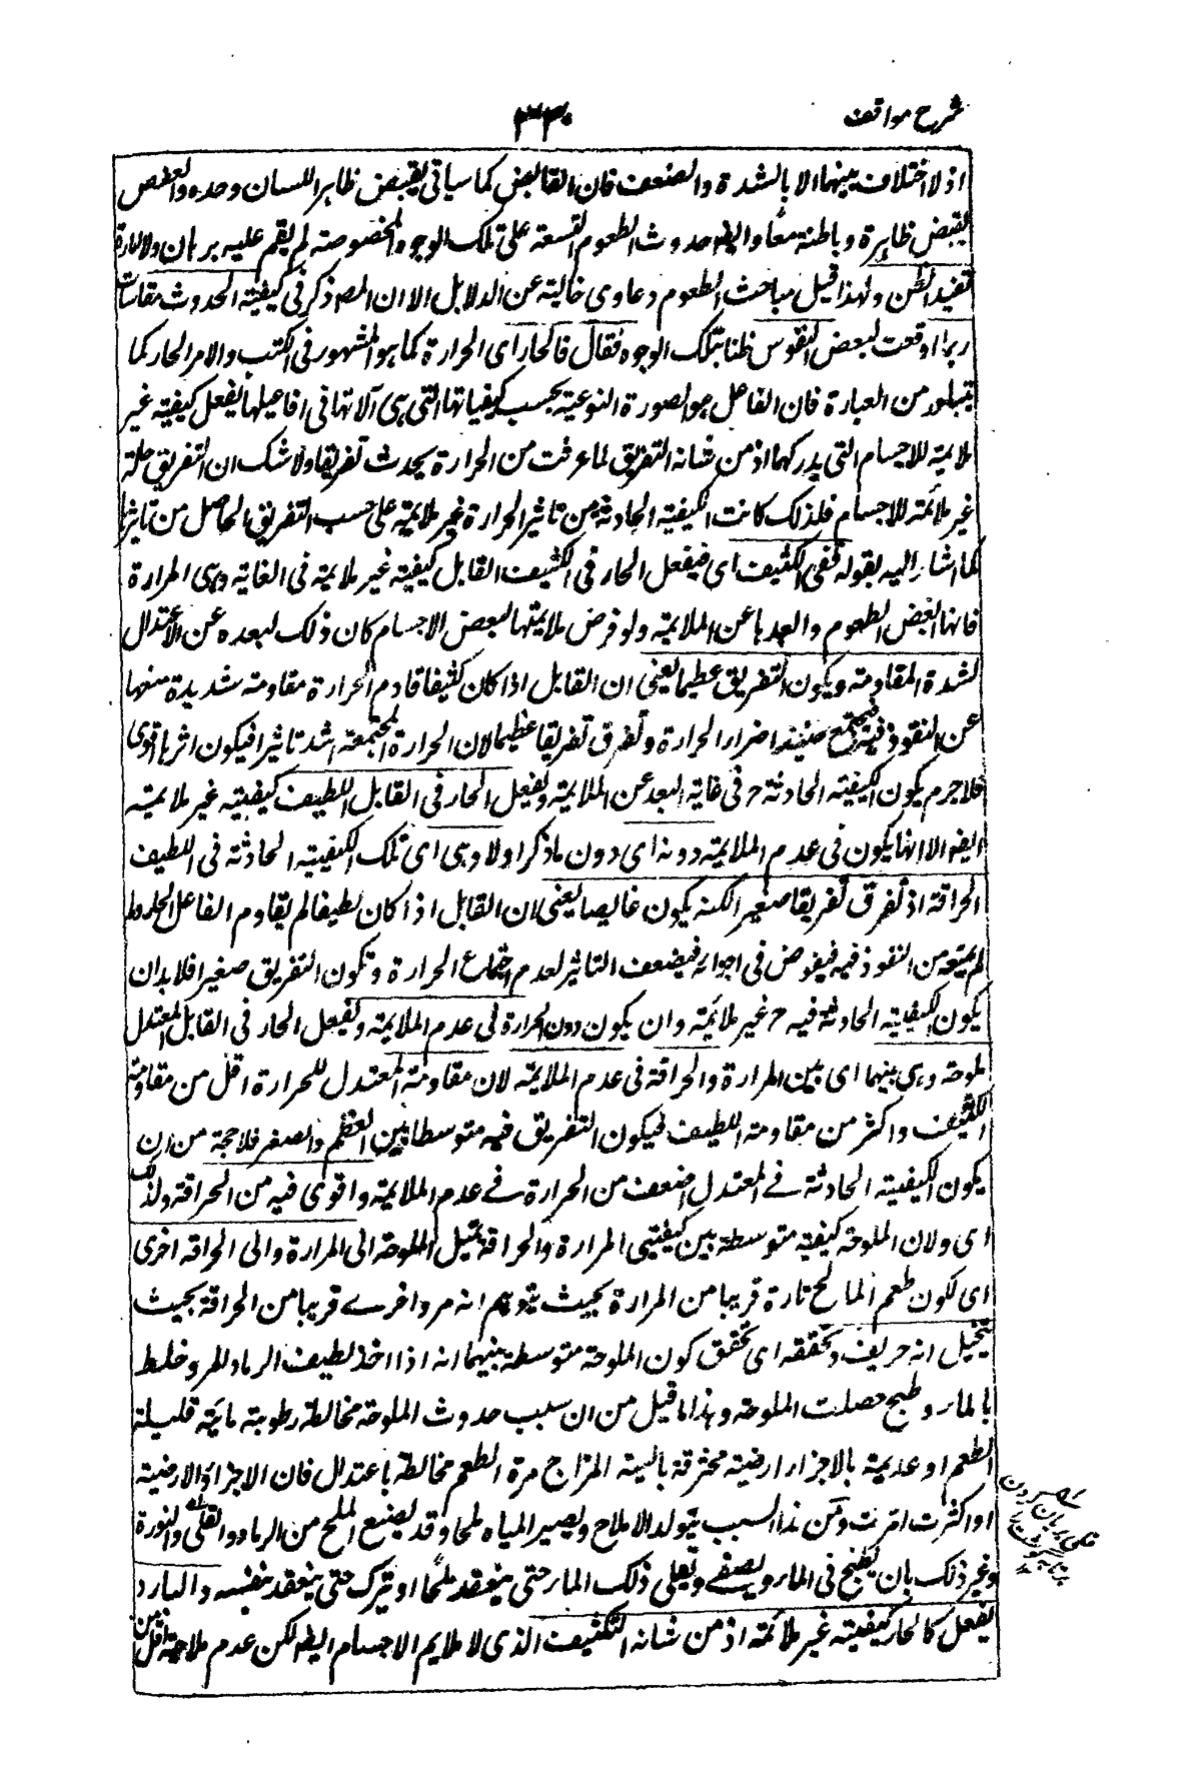 شرح مواقف
٣٣٠
اذ لا اختلاف بينهما الا بالشدة والضعف فان القابض كما سياتى يقبض ظاهر اللسان وحده والعفص
يقبض ظاهره وباطنه معًا وايضا حدوث الطعوم التسعة على تلك الوجوه المخصوصة لم يقم عليه برهان ولا امارة
تفيد الظن ولهذا قيل مباحث الطعوم دعاوى خالية عن الدلايل الا ان المصـ ذكر فى كيفية الحدوث مقاسات
ربما اوقعت لبعض النفوس ظنا بتلك الوجوه فقال فالحار اى الحرارة كما هو المشهور فى الكتب والامر الحار كما
يتبادر من العبارة فان الفاعل هو الصورة النوعية بحسب كيفياتها التى هى آلاتها فى افاعيلها يفعل كيفية غير
ملايمة للاجسام التى يدركها اذ من شانه التفريق لما عرفت من الحرارة يحدث تفريقا ولا شك ان التفريق حالة
غير ملائمة للاجسام فلذلك كانت الكيفية الحادثة من تاثير الحرارة غير ملايمة على حسب التفريق الحاصل من تاثيرها
كما اشار اليه بقوله ففى الكثيف اى فيفعل الحار فى الكثيف القابل كيفية غير ملايمة فى الغاية وهى المرارة
فانها ابغض الطعوم وابعدها عن الملايمة ولو فرض ملايمتها لبعض الاجسام كان ذلك لبعده عن الاعتدال
لشدة المقاومة ويكون التفريق عظيما يعنى ان القابل اذا كان كثيفا قاوم الحرارة مقاومة شديدة منعها
عن النفوذ فيه فيجتمع حينئذ اضرار الحرارة وتفرق تفريقا عظيما لان الحرارة المجتمعة اشد تاثيرا فيكون اثرها اقوى
فلا جرم يكون الكيفية الحادثة ح فى غاية البعد عن الملايمة ويفعل الحار فى القابل اللطيف كيفية غير ملايمة
ايضا الا انها يكون فى عدم الملايمة دونه اى دون ما ذكر اولا وهى اى تلك الكيفية الحادثة فى اللطيف
الحراقة اذ تفرق تفريقا صغيرا لكنه يكون غايصا يعنى لان القابل اذا كان لطيفا لم يقاوم الفاعل الحار ولم
لم يمنعه من النفوذ فيه فيغوص فى اجزائه فيضعف التاثير لعدم اجتماع الحرارة وتكون التفريق صغيرا فلا بد ان
يكون الكيفية الحادثة فيه ح غير ملائمة وان يكون دون المرارة فى عدم الملايمة ويفعل الحار فى القابل المعتدل
ملوحة وهى بينهما اى بين المرارة والحراقة فى عدم الملايمة لان مقاومة المعتدل للحرارة اقل من مقاومة
الكثيف واكثر من مقاومة اللطيف فيكون التفريق فيه متوسطا بين العظم والصغر فلا محة من ان
يكون الكيفية الحادثة فى المعتدل اضعف من المرارة فى عدم الملايمة واقوى فيه من الحراقة ولذلك
اى ولان الملوحة كيفية متوسطة بين كيفيتى المرارة والحراقة تميل الملوحة الى المرارة والى الحراقة اخرى
اى لكون طعم المالح تارة قريبا من المرارة بحيث يتوهم انه مر واخرى قريبا من الحراقة بحيث
يتخيل انه حريف وتحققه اى تحقق كون الملوحة متوسطة بينهما انه اذا اخذ لطيف الرماد المر وخلط
بالماء وطبخ حصلت الملوحة وهذا ما قيل من ان سبب حدوث الملوحة مخالطة رطوبة مائية قليلة
الطعم او عديمة بالاجزاء ارضية محترقة يابسة المزاج مرة الطعم مخالطة باعتدال فان الاجزاء الارضية
او اكثرت امرت ومن هذا السبب يتولد الاملاح ويصير المياه ملحا وقد يصنع الملح من الرماد والقلى والنورة
وغير ذلك بان يطبخ فى الماء ويصفى ويغلى ذلك الماء حتى ينعقد ملحًا او يترك حتى ينعقد بنفسه والبارد
يفعل كالحار كيفية غير ملائمة اذ من شانه التكثيف الذى لا يلايم الاجسام ايضا لكن عدم ملايمته اقل من